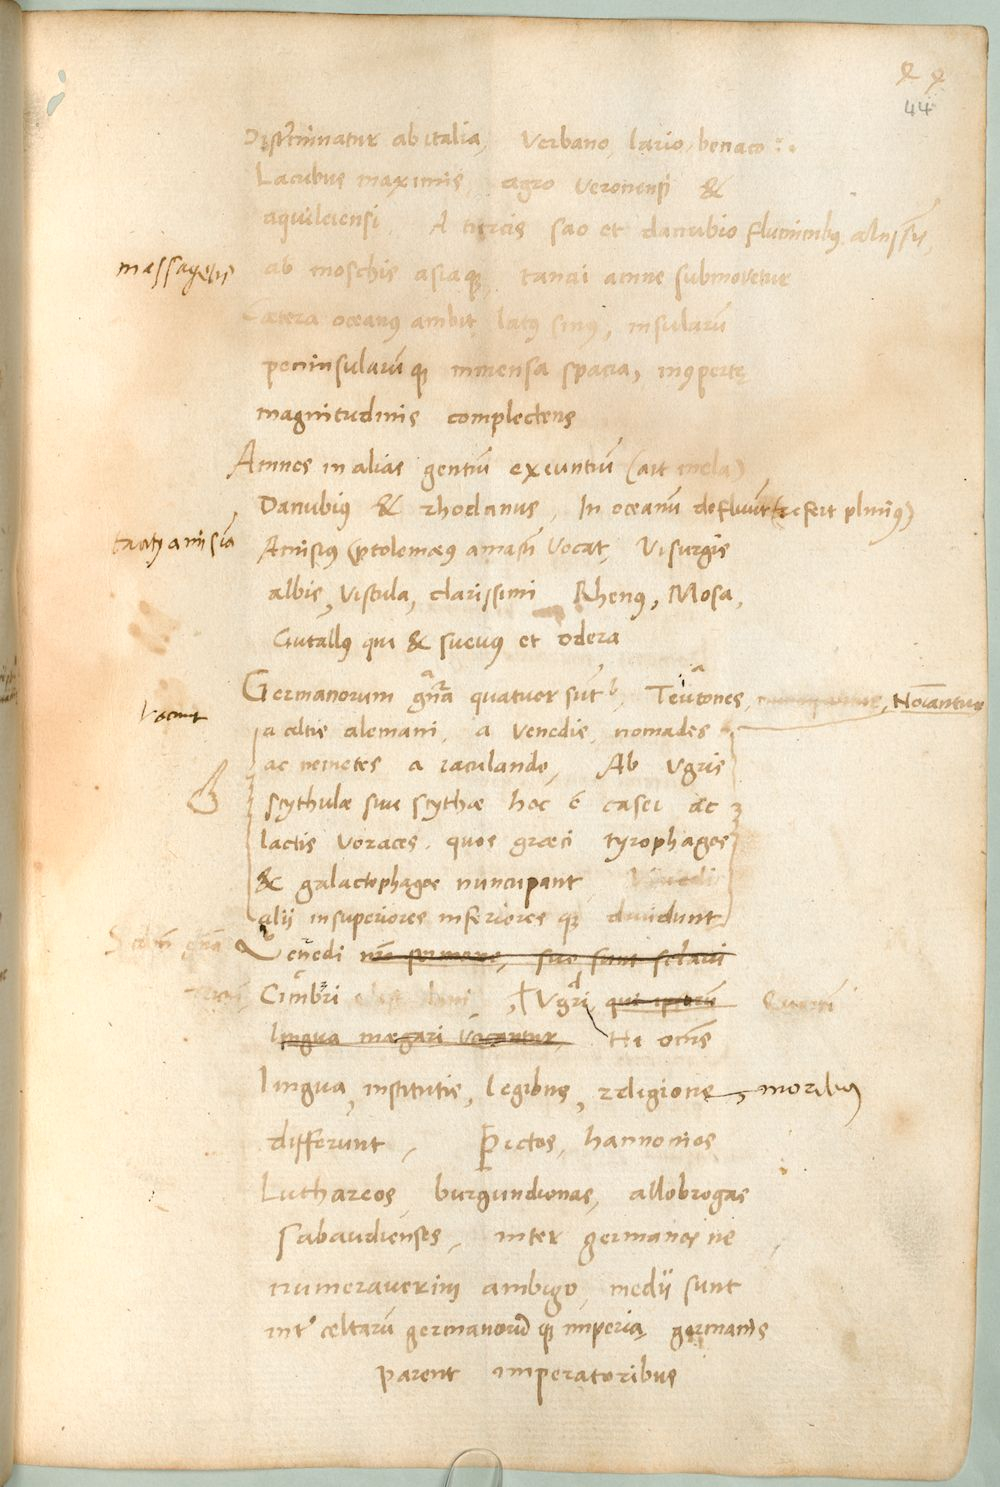 44
Discriminatur ab italia, Verbano, lario, benaco
Lacubus maximis, agro Veronensi &
aquileiensi, A turcis sao et danubio fluminibus altissis,
massagetis
ab moschis asiaq, tanai amne submovetur
Cætera oceanus ambit latus sinus, insularū
peninsularū q immensa spacia, inopertę
magnitudinis complectens
Amnes in alias gentiū exeuntiū (ait mela)
Danubius & rhodanus, In oceanū defluūt (refert plinius)
Amisius (ptolemæus amasiū Vocat, Visurgis
albis, Vistula, clarissimi Rhenus, Mosa,
Gutallus qui & suevus et odera
Germanorum gn̄a quatuor sūt, Teutones, Noīantur
Vocant
a celtis alemani, a Venedis, nomades
ac nemetes a iaculando, Ab Vgris
scythulæ sui scythæ hoc ē casei ac
lactis Voraces. quos græci tyrophagos
& galactophagos nuncupant
alij in superiores inferiores q dividunt
Venedi sermone, sunt sclavi
Cimbri Vgri,
lingua mægari Vocantur, Hi oēs
lingua, institutis, legibus, religione, moribus
differunt, Pictos, hannonios
Luthareos, burgundionas, allobrogas
Sabaudienses, inter germanos ne
numeraverim ambigo, medij sunt
int' celtarū germanorū q imperia, germanis
parent imperatoribus